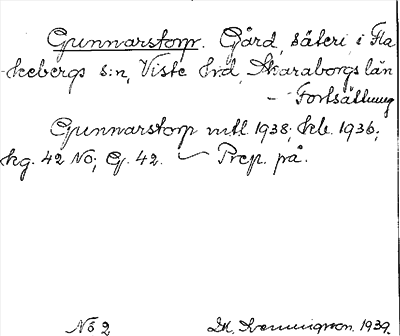 Gunnarstorp. Gård, säteri, i Fla-
kebergs s:n, Viste hrd, Skaraborgs län
- Fortsättning
Gunnarstorp mtl. 1938; kb. 1936;
kg. 42 No; G. 42. — Prep. på.
No 2
1939.